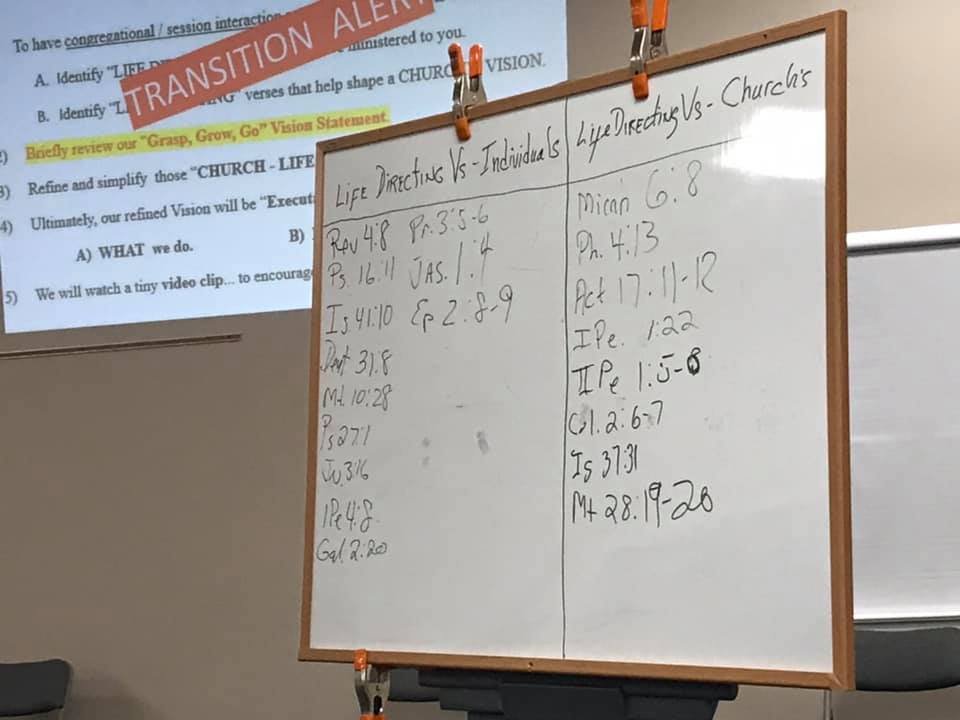 To have congregational / session interaction
TRANSITION ALERT
A. Identify "LIFE ministered to you.
B. Identify "L ING" verses that help shape a CHURCH VISION.
) Briefly review our "Grasp, Grow, Go" Vision Statement.
3) Refine and simplify those "CHURCH - LIFE
4) Ultimately, our refined Vision will be "Execut
A) WHAT we do. B)
5) We will watch a tiny video clip... to encourag
LIFE DIRECTING Vs - Individuals
Rev 4:8 Pr. 3:5-6
Ps. 16:11 JAS. 1:4
Is. 41:10 Ep 2:8-9
Deut 31:8
Mt. 10:28
Ps 27:1
Jn. 3:16
1Pe 4:8
Gal. 2:20
Life DIRECTING Vs - Church's
Micah 6:8
Ph. 4:13
Act 17:11-12
I Pe. 1:22
II Pe 1:5-8
Col. 2:6-7
Is 37:31
Mt 28:19-20